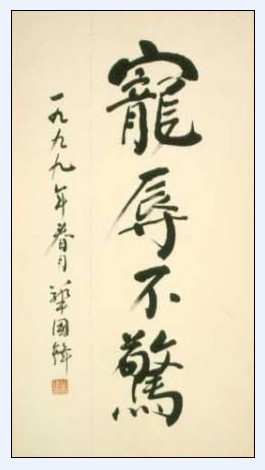 寵辱不驚
一九九九年春月 鞏國鋒